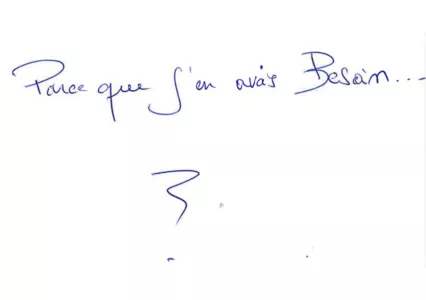 Parce que j'en avais Besoin...